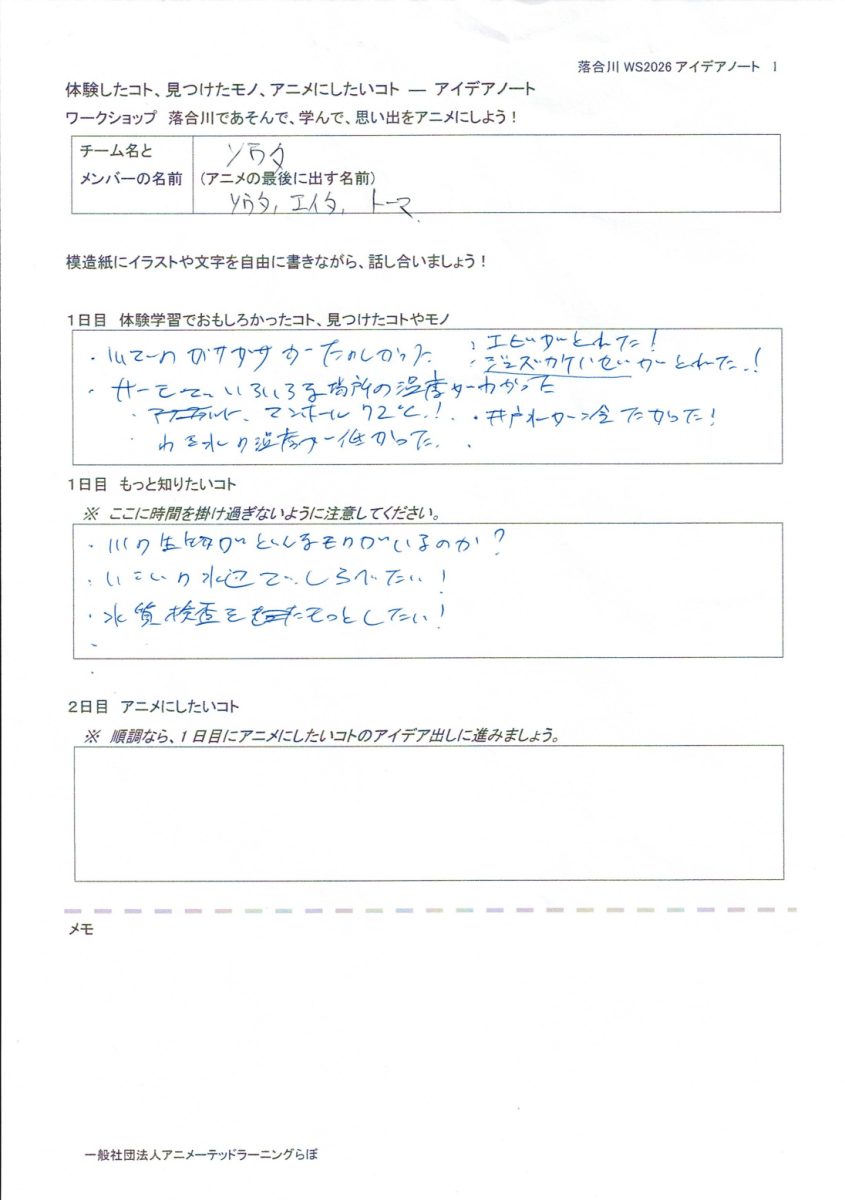 落合川 WS2026 アイデアノート 1
体験したコト、見つけたモノ、アニメにしたいコト ― アイデアノート
ワークショップ 落合川であそんで、学んで、思い出をアニメにしよう！
チーム名と
ソウタ
メンバーの名前
(アニメの最後に出す名前)
ソウタ, エイタ, トーマ
模造紙にイラストや文字を自由に書きながら、話し合いましょう！
1日目 体験学習でおもしろかったコト、見つけたコトやモノ
・川での ガサガサ が たのしかった
・エビがとれた！
・ジュズカケハゼがとれた！
・サーモで、いろいろな場所の温度がわかった
・マンホール 72℃！
・井戸水が冷たかった！
わき水の温度が低かった
1日目 もっと知りたいコト
※ ここに時間を掛け過ぎないように注意してください。
・川の生物がどんなモノがいるのか？
・いこいの水辺で、しらべたい！
・水質検査をもっとしたい！
2日目 アニメにしたいコト
※ 順調なら、1日目にアニメにしたいコトのアイデア出しに進みましょう。
メモ
一般社団法人アニメーテッドラーニングらぼ